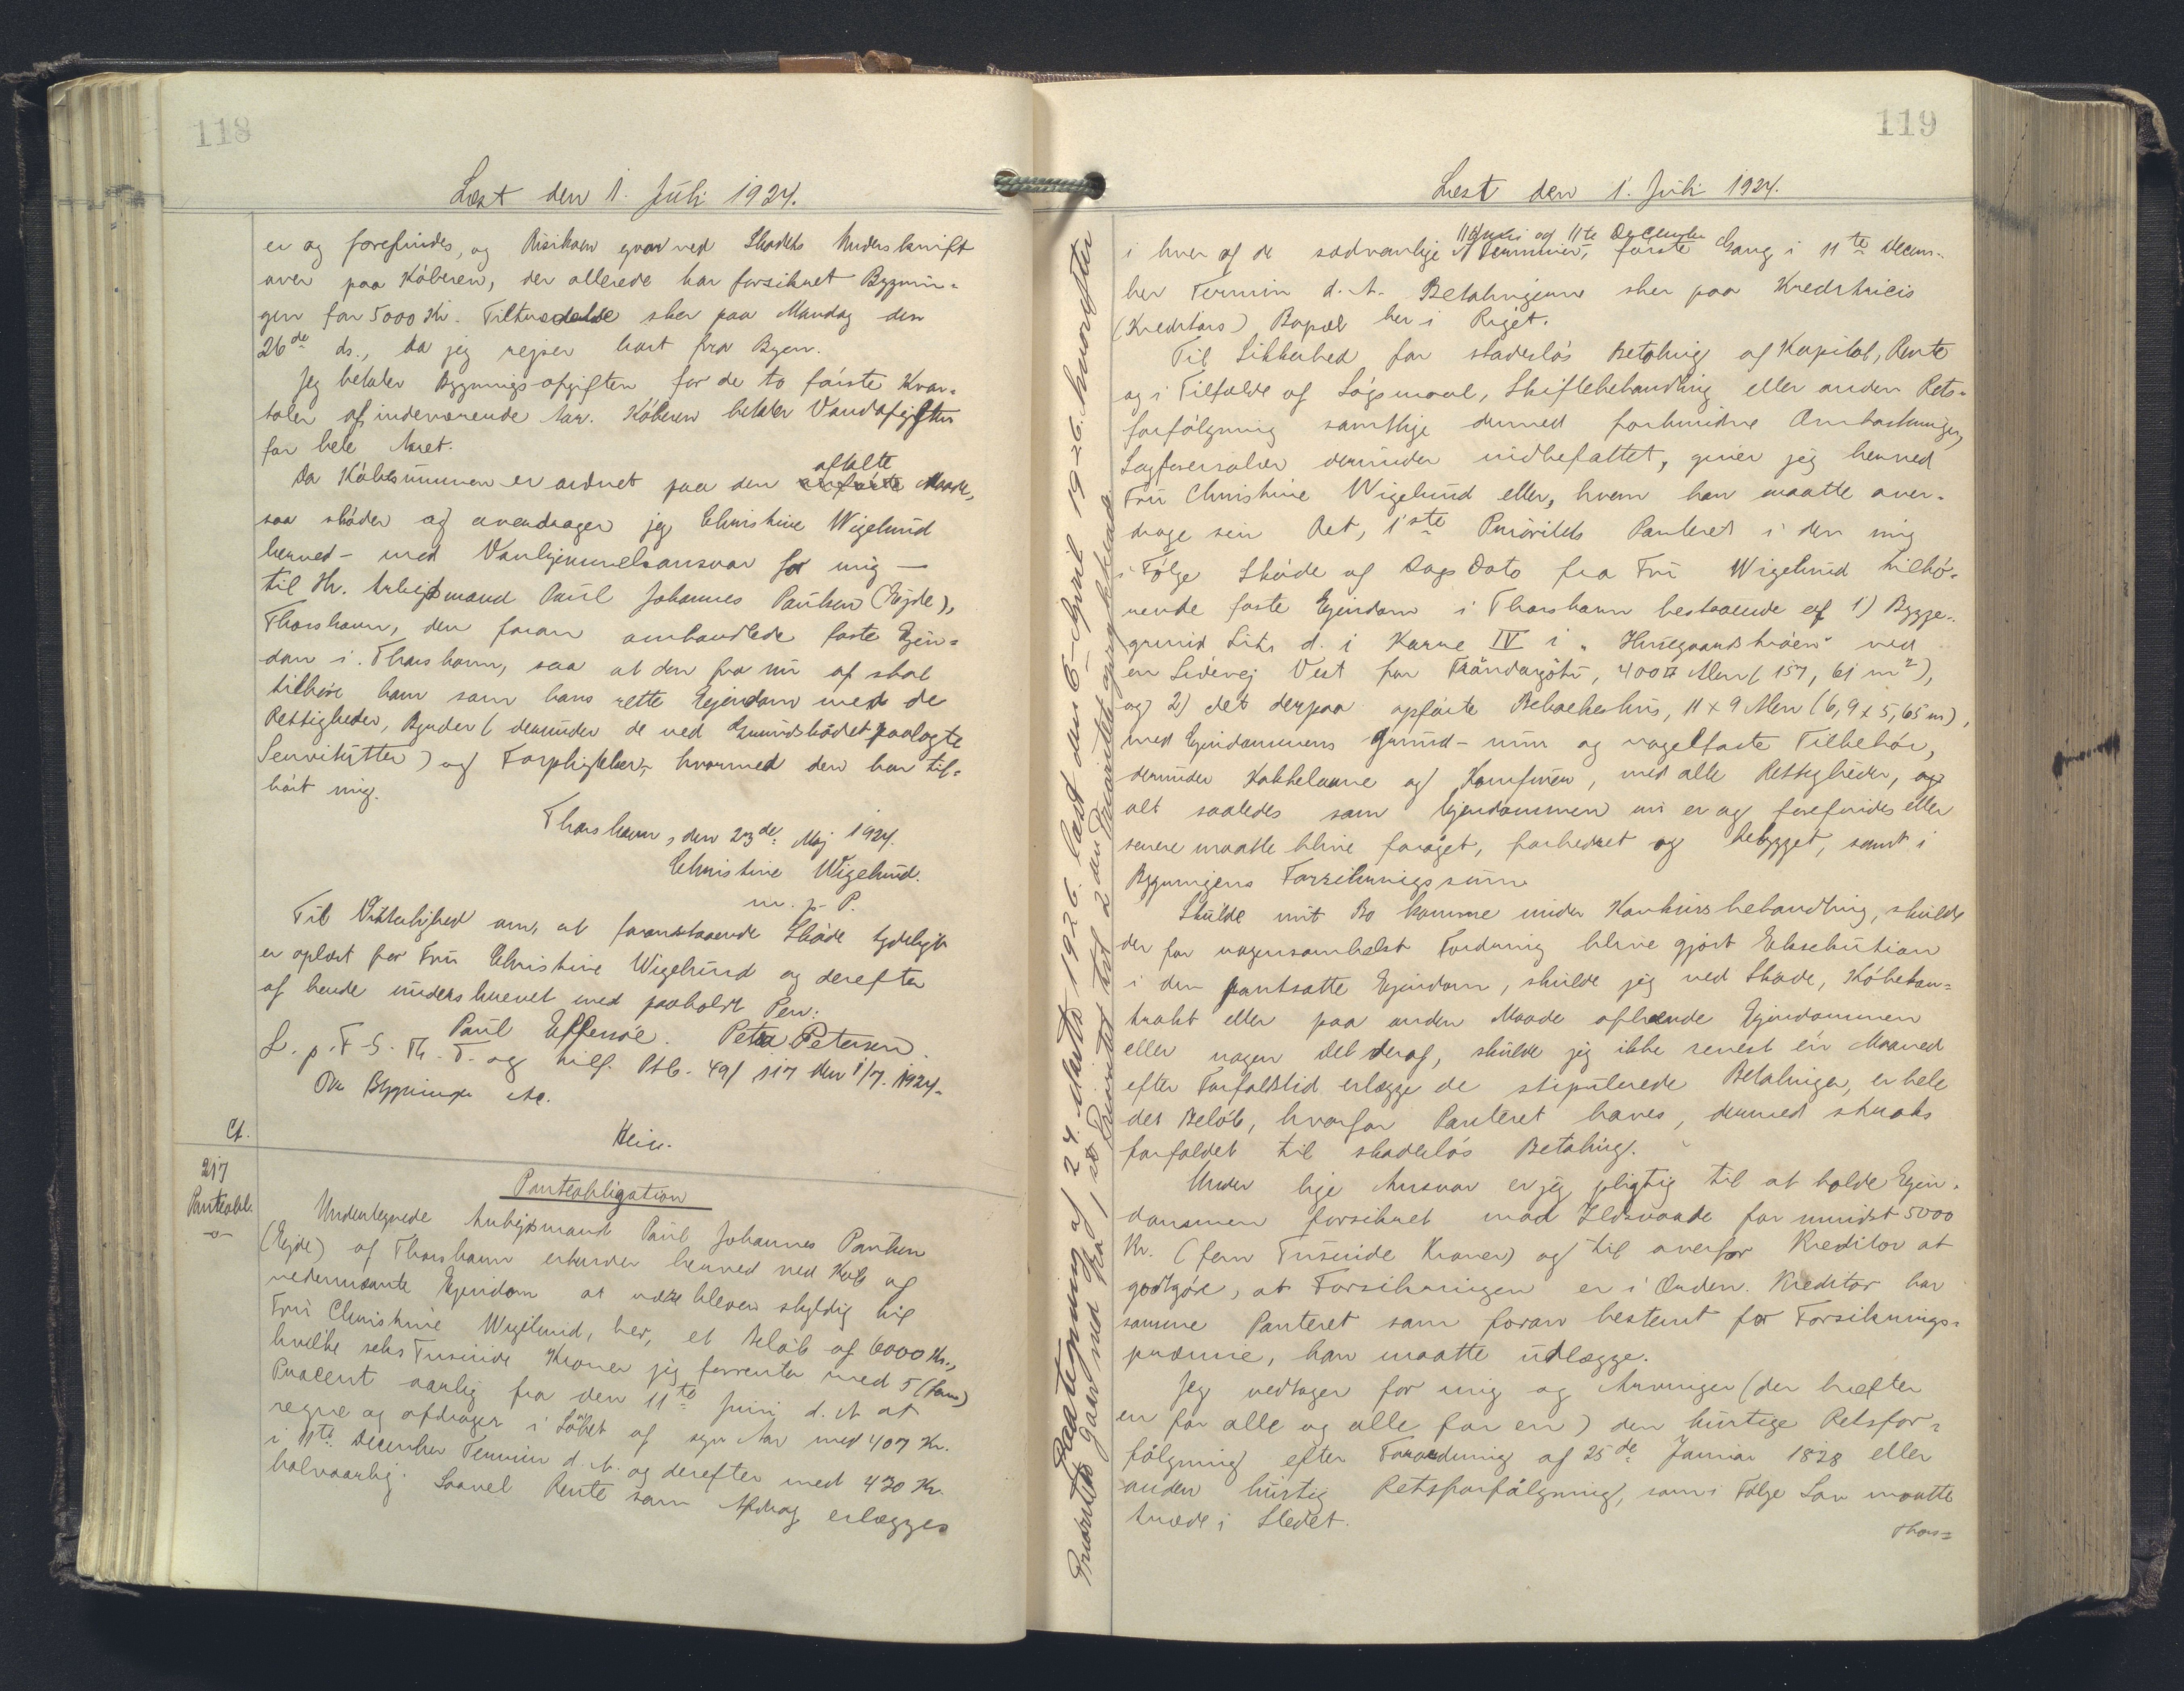 118
Læst den 1. Juli 1924.
er og forefindes, og Risikoen gaar ved Skødets Underskrift
over paa Køberen, der allerede har forsikret Bygnin-
gen for 5000 Kr. Tiltrædelse sker paa Mandag den
26de ds., da jeg rejser bort fra Byen.
Jeg betaler Bygningsafgiften for de to første Kvar-
taler af indeværende Aar. Køberen betaler Vandafgiften
for hele Aaret.
aftalte
Da Købesummen er ordnet paa den anførte Maade,
saa skøder og overdrager jeg Christine Wigelund
herved - med Vanhjemmelsansvar for mig -
til Hr. Arbejdsmand Paul Johannes Paulsen (Ejde),
Thorshavn, den foran omhandlede faste Ejen-
dom i Thorshavn, saa at den fra nu af skal
tilhøre ham som hans rette Ejendom med de
Rettigheder, Byrder (derunder de ved Grundskødet paalagte
Servitutter) og Forpligtelser, hvormed den har til-
hørt mig.
Thorshavn, den 23de Maj 1924.
Christine Wigelund.
m. p. P.
Til Vitterlighed om, at foranstaaende Skøde tydeligt
er oplæst for Fru Christine Wigelund og derefter
af hende underskrevet med paaholdt Pen:
Paul Effersøe. Petra Petersen.
L. p. F. S. Th. T. og tilf. Ptb. 49/117 den 1/7. 1924.
Om Bygninger Att.
Ct.
Hein.
217
Panteobl.
Panteobligation
Undertegnede Arbejdsmand Paul Johannes Paulsen
(Ejde) af Thorshavn erkender herved ved Køb af
nedennævnte Ejendom at være bleven skyldig til
Fru Christine Wigelund, her, et Beløb af 6000 Kr.,
hvilke seks Tusinde Kroner jeg forrenter med 5 (fem)
Procent aarlig fra den 11te Juni d. A. at
regne og afdrager i Løbet af syv Aar med 407 Kr.
i 11te December Termin d. A. og derefter med 430 Kr.
halvaarlig. Saavel Rente som Afdrag erlægges
119
Læst den 1. Juli 1924.
11te Juni og 11te December
i hver af de sædvanlige Terminer, første Gang i 11te Decem-
ber Termin d. A. Betalingerne sker paa Kreditricis
(Kreditors) Bopæl her i Riget.
Til Sikkerhed for skadesløs Betaling af Kapital, Rente
og i Tilfælde af Søgsmaal, Skiftebehandling eller anden Rets-
forfølgning samtlige dermed forbundne Omkostninger,
Sagførersalær derunder indbefattet, giver jeg herved
Fru Christine Wigelund eller, hvem hun maatte over-
drage sin Ret, 1ste Prioritets Panteret i den mig
i Følge Skøde af Dags Dato fra Fru Wigelund tilhø-
rende faste Ejendom i Thorshavn bestaaende af 1) Bygge-
grund Litr. d. i Karre IV i "Húsagardstrøen" ved
en Sidevej Vest for Tróndargøtu, 400 □ Alen (157,61 m²),
og 2) det derpaa opførte Beboelseshus, 11 x 9 Alen (6,9 x 5,65 m),
med Ejendommens grund- mur og nagelfaste Tilbehør,
derunder Kakkelovne og Komfurer, med alle Rettigheder, og
alt saaledes som Ejendommen nu er og forefindes eller
senere maatte blive forøget, forbedret og bebygget, samt i
Bygningens Forsikringssum.
Skulde mit Bo komme under Konkursbehandling, skulde
der for nogensomhelst Fordring blive gjort Eksekution
i den pantsatte Ejendom, skulde jeg ved Skøde, Købekon-
trakt eller paa anden Maade afhænde Ejendommen
eller nogen Del deraf, skulde jeg ikke senest én Maaned
efter Forfaldstid erlægge de stipulerede Betalinger, er hele
det Beløb, hvorfor Panteret haves, dermed straks
forfaldet til skadesløs Betaling.
Under lige Ansvar er jeg pligtig til at holde Ejen-
dommen forsikret mod Ildsvaade for mindst 5000
Kr. (fem Tusinde Kroner) og til overfor Kreditor at
godtgøre, at Forsikringen er i Orden. Kreditor har
samme Panteret som foran bestemt for Forsiknings-
præmie, han maatte udlægge.
Jeg vedtager for mig og Arvinger (der hæfter
en for alle og alle for en) den hurtige Retsfor-
følgning efter Forordning af 25de Januar 1828 eller
anden hurtig Retsforfølgning, som i Følge Lov maatte
træde i Stedet.
Thors-
Paategning af 24. Marts 1926. læst den 6- April 1926. hvorefter
Prioritets gaar ned fra 1ste Prioritet til 2den Prioritet